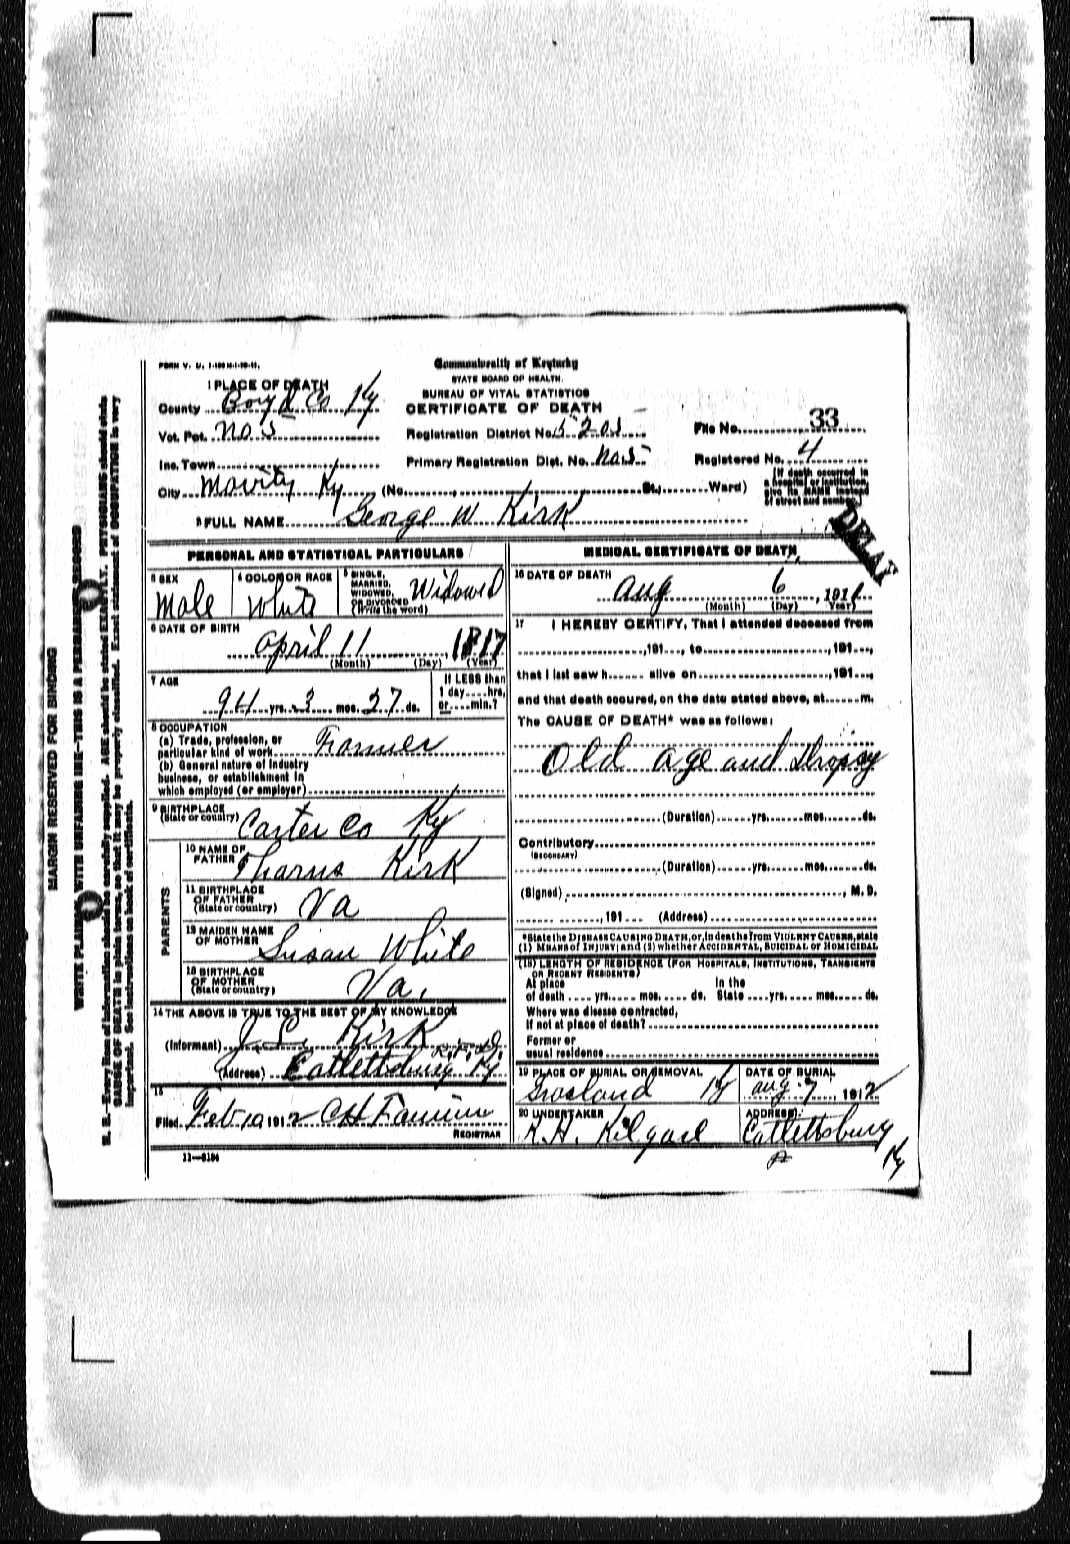 Commonwealth of Kentucky
STATE BOARD OF HEALTH.
BUREAU OF VITAL STATISTICS
CERTIFICATE OF DEATH
1 PLACE OF DEATH
County Boyd Co Ky
Vot. Pct. No 5
Registration District No. 5201
File No. 33
Inc. Town
Primary Registration Dist. No. No 5
Registered No. 4
City Mavity Ky (No. , St.; Ward)
[If death occurred in
a hospital or institution,
give its NAME instead
of street and number.]
2 FULL NAME George W Kirk
DELAY
PERSONAL AND STATISTICAL PARTICULARS
3 SEX
Male
4 COLOR OR RACE
White
5 SINGLE,
MARRIED,
WIDOWED,
OR DIVORCED
(Write the word)
Widowed
6 DATE OF BIRTH
April 11, 1817
(Month) (Day) (Year)
7 AGE
94 yrs. 3 mos. 27 ds.
If LESS than
1 day....hrs,
or....min.?
8 OCCUPATION
(a) Trade, profession, or
particular kind of work Farmer
(b) General nature of industry
business, or establishment in
which employed (or employer)
9 BIRTHPLACE
(State or country) Carter Co Ky
PARENTS
10 NAME OF
FATHER Kirk
11 BIRTHPLACE
OF FATHER
(State or country) Va
12 MAIDEN NAME
OF MOTHER Susan White
13 BIRTHPLACE
OF MOTHER
(State or country) Va.
14 THE ABOVE IS TRUE TO THE BEST OF MY KNOWLEDGE
(Informant) Kirk
(Address) Catlettsburg Ky
15
Filed Feb 10, 1912 C H
REGISTRAR
11—3184
MEDICAL CERTIFICATE OF DEATH
16 DATE OF DEATH
Aug 6, 1911
(Month) (Day) (Year)
17 I HEREBY CERTIFY, That I attended deceased from
, 191..., to , 191...,
that I last saw h...... alive on , 191...,
and that death occured, on the date stated above, at......m.
The CAUSE OF DEATH* was as follows:
Old age and dropsy
(Duration) yrs. mos. ds.
Contributory
(SECONDARY)
(Duration) yrs. mos. ds.
(Signed) , M. D.
, 191... (Address)
*State the DISEASE CAUSING DEATH, or, in deaths from VIOLENT CAUSES, state
(1) MEANS OF INJURY; and (2) whether ACCIDENTAL, SUICIDAL, or HOMICIDAL
(18) LENGTH OF RESIDENCE (FOR HOSPITALS, INSTITUTIONS, TRANSIENTS
OR RECENT RESIDENTS)
At place In the
of death .... yrs. .... mos. .... ds. State .... yrs. .... mos. .... ds.
Where was disease contracted,
if not at place of death?
Former or
usual residence
19 PLACE OF BURIAL OR REMOVAL
Ky
DATE OF BURIAL
Aug. 7, 1912
20 UNDERTAKER
K. H. Kilgore
ADDRESS:
Catlettsburg
Ky
MARGIN RESERVED FOR BINDING
WRITE PLAINLY WITH UNFADING INK—THIS IS A PERMANENT RECORD
N. B.—Every item of information should be carefully supplied. AGE should be stated EXACTLY. PHYSICIANS should state
CAUSE OF DEATH in plain terms, so that it may be properly classified. Exact statement of OCCUPATION is very
important. See instructions on back of certificate.